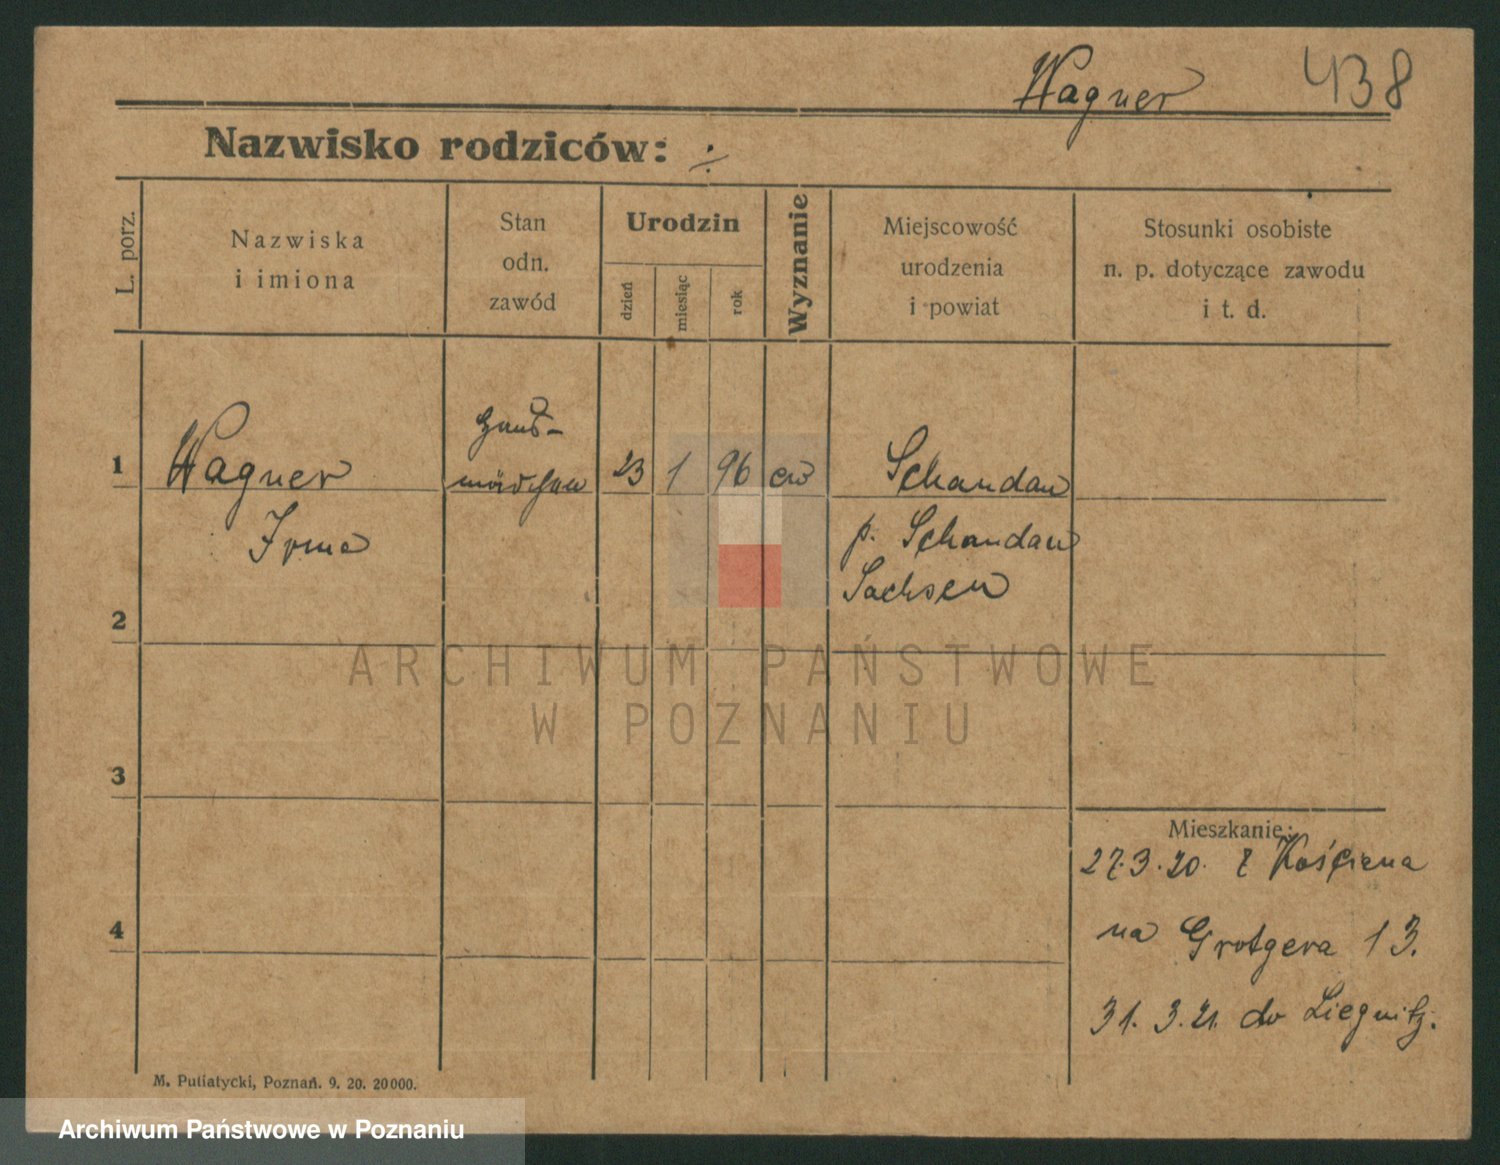 Wagner 438
Nazwisko rodziców: ÷
L. porz.
Nazwiska
i imiona
Stan
odn.
zawód
Urodzin
dzień
miesiąc
rok
Wyznanie
Miejscowość
urodzenia
i powiat
Stosunki osobiste
n. p. dotyczące zawodu
i t. d.
1
Wagner
Irma
Haus-
mädchen
23 1 96 ew
Schandau
p. Schandau
Sachsen
2
3
4
Mieszkanie:
27.3.20. z Kościana
na Grotgera 13.
31.3.21. do Liegnitz.
M. Putiatycki, Poznań. 9. 20. 20000.
ARCHIWUM PAŃSTWOWE
W POZNANIU
Archiwum Państwowe w Poznaniu